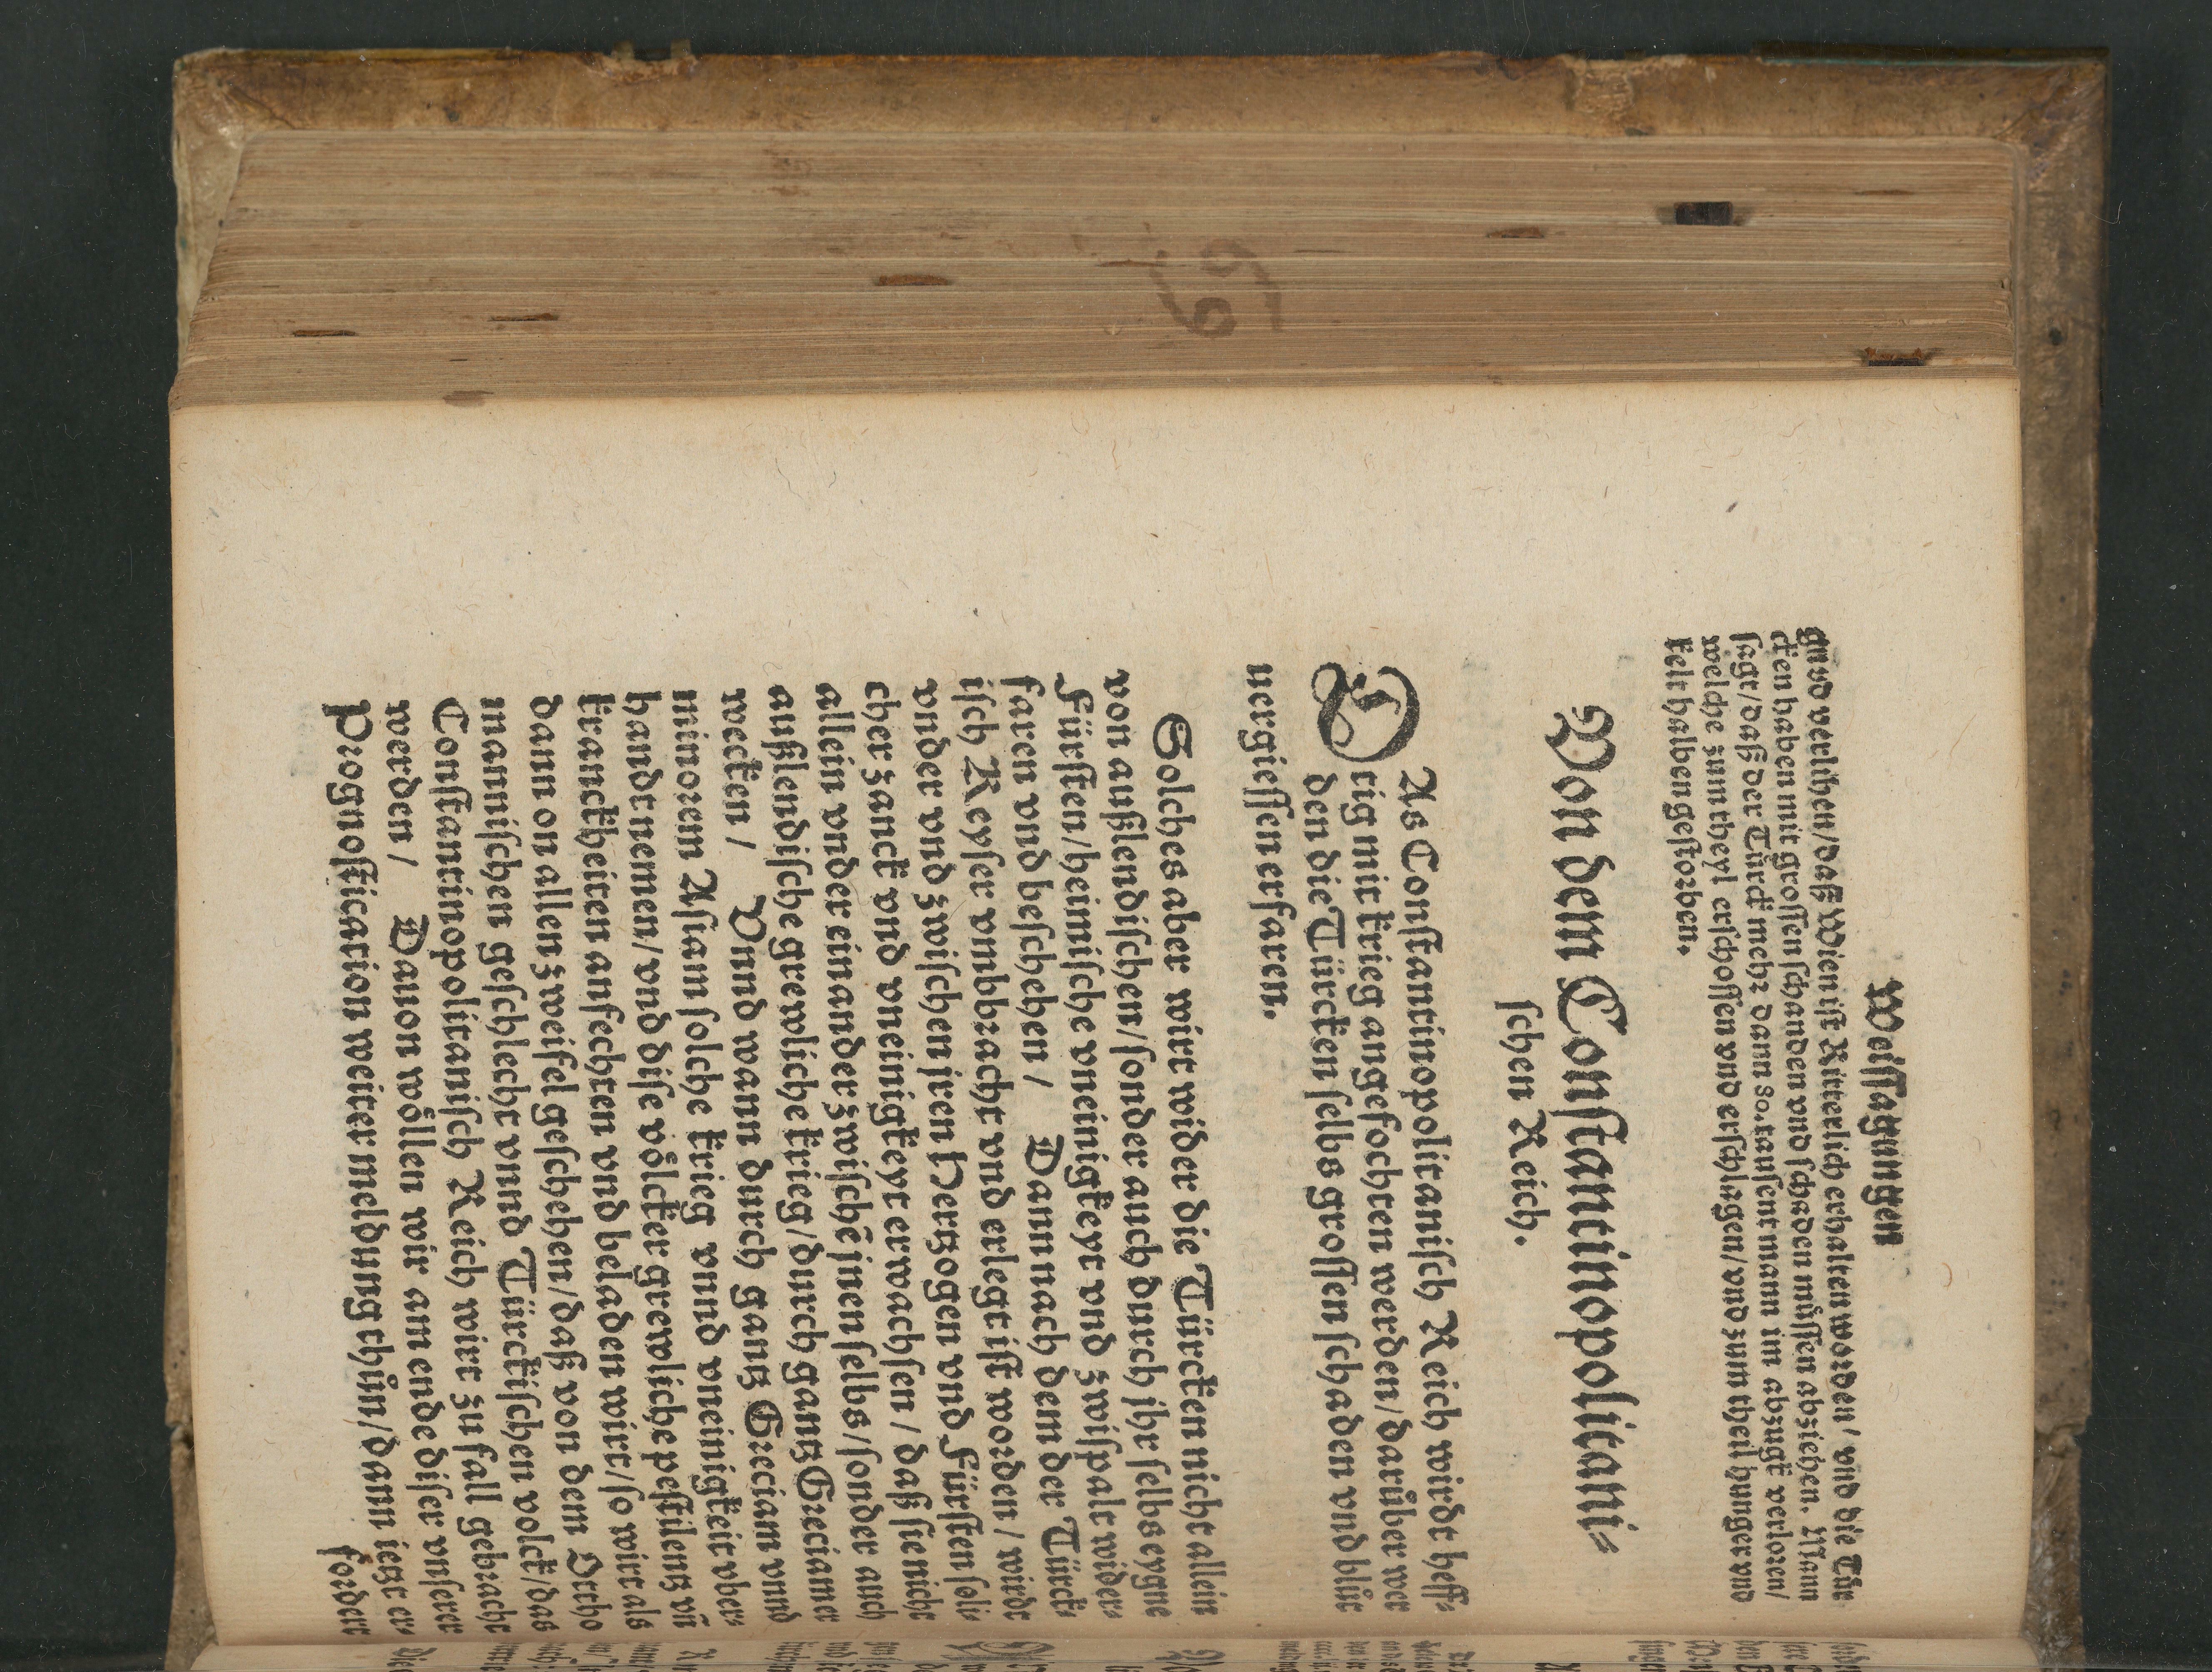 Weissagungen
gnad verlihen/daß Wien ist Ritterlich erhalten worden/ vnd die Tür
cken haben mit grossen schanden vnd schaden müssen abziehen. Mann
sagt/daß der Türck mehr dann 80. tausent mann im abzugk verloren/
welche zum theyl erschossen vnd erschlagen/vnd zum theil hunger vnd
kelt halben gestorben.
Von dem Constantinopolitani⸗
schen Reich.
DAs Constantinopolitanisch Reich wirdt heff⸗
tig mit krieg angefochten werden/darüber wer
den die Türcken selbs grossen schaden vnd blůt
uergiessen erfaren.
Solches aber wirt wider die Türcken nicht allein
von außlendischen/sonder auch durch jhr selbs eygne
Fürsten/heimische vneinigkeyt vnd zwispalt wider⸗
faren vnd beschehen/ Dann nach dem der Türck⸗
isch Keyser vmbbracht vnd erlegt ist worden/ wirdt
vnder vnd zwischen jren Hertzogen vnd Fürsten soli⸗
cher zanck vnd vneinigkeyt erwachsen/daß sie nicht
allein vnder einander zwischē jnen selbs/sonder auch
außlendische grewliche krieg/durch gantz Greciam vnnd
wecken/ Vnnd wann durch gantz Greciam vnnd
minorem Asiam solche krieg vnnd vneinigkeit vber⸗
handt nemen/vnd dise völcker grewliche pestilentz vñ
kranckheiten anfechten vnd beladen wirt/so wirt als
dann on allen zweifel geschehen/daß von dem Otho
mannischen geschlecht vnnd Türckischen volck/das
Constantinopolitanisch Reich wirt zu fall gebracht
werden/ Dauon wöllen wir am ende diser vnserer
Prognostication weiter meldung thůn/dann jetzt er⸗
fordert